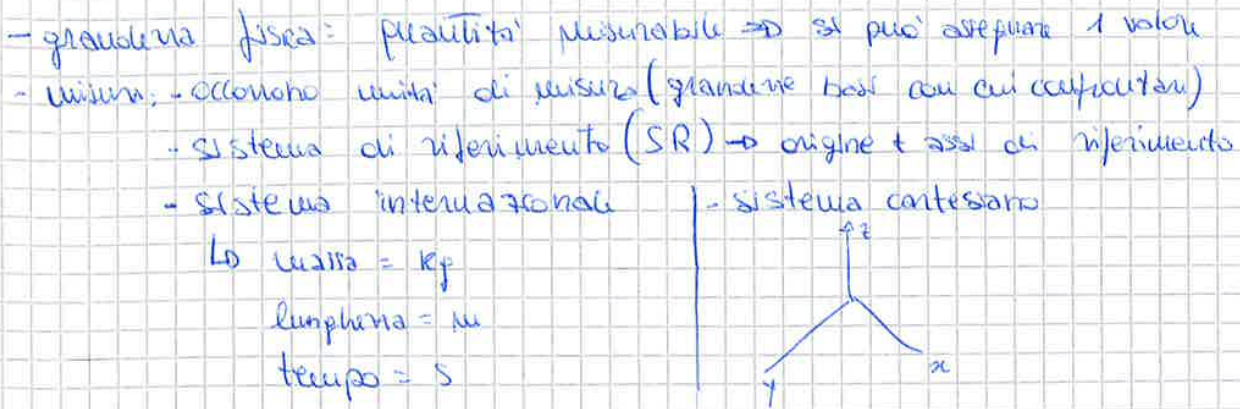 - grandezza fisica: quantità misurabile => si può assegnare 1 valore
- misura: - occorrono unità di misura (grandezze base con cui confrontare)
- sistema di riferimento (SR) → origine + assi di riferimento
- sistema internazionale
↳ massa = Kg
lunghezza = m
tempo = s
- sistema cartesiano
z
y
x